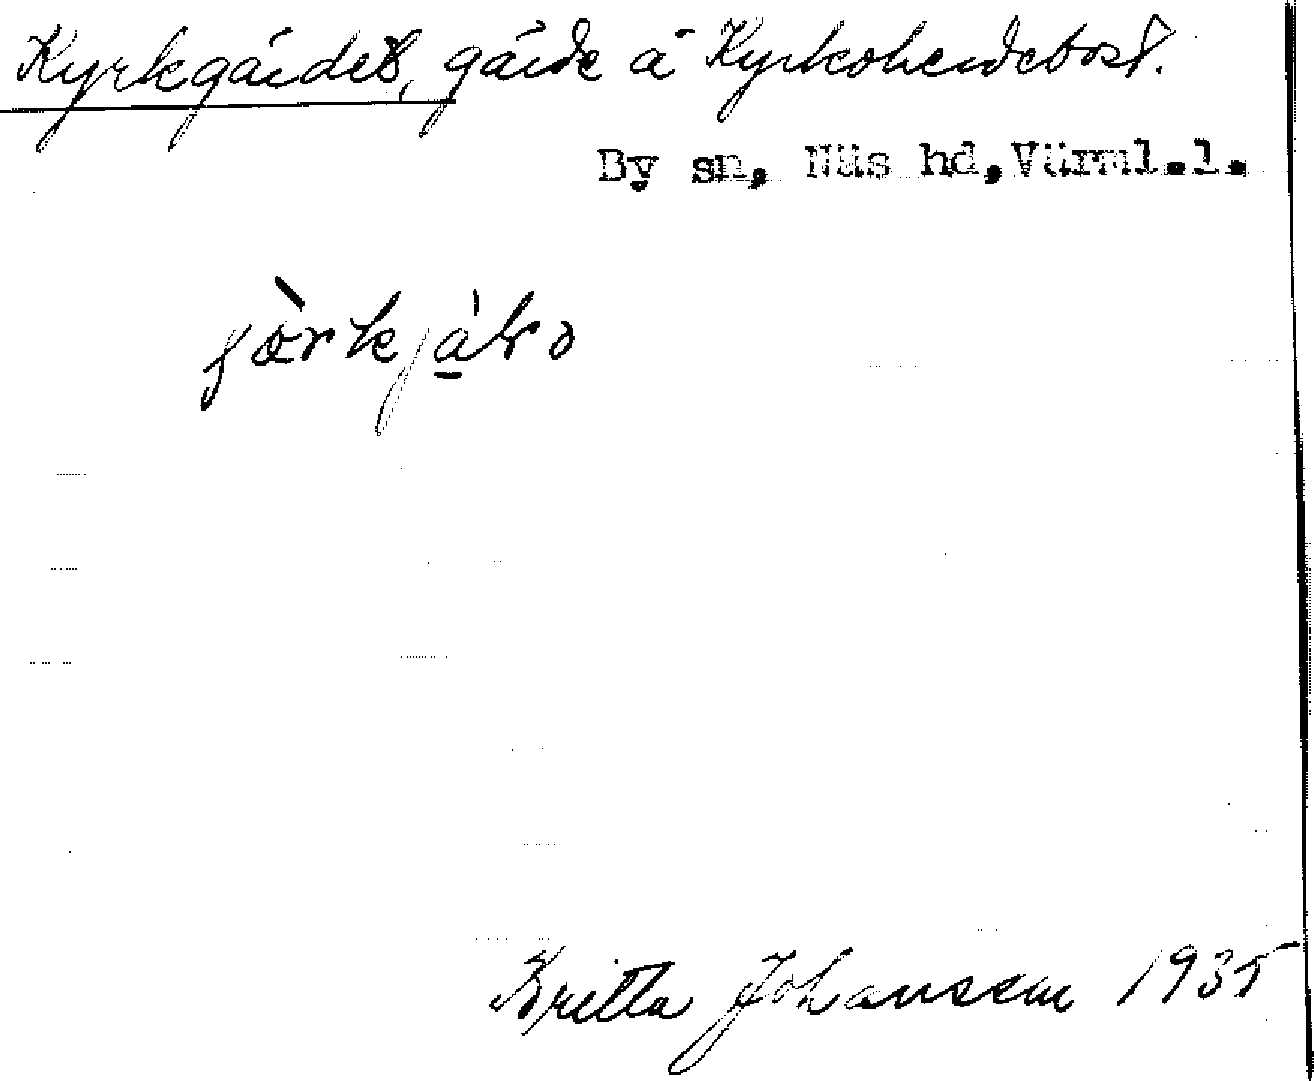 Kyrkgärdet, gärde å Kyrkoherdebost.
By sn, Näs hd, Värml.l.
Britta Johansson 1935